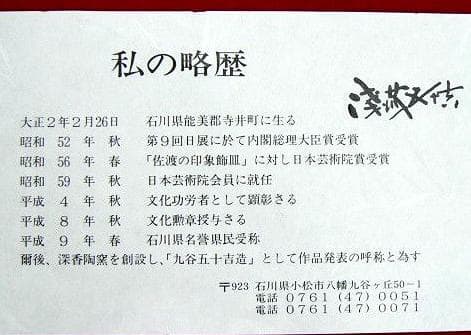 私の略歴
浅蔵五十吉
大正2年2月26日 石川県能美郡寺井町に生る
昭和 52 年 秋 第9回日展に於て内閣総理大臣賞受賞
昭和 56 年 春 「佐渡の印象飾皿」に対し日本芸術院賞受賞
昭和 59 年 秋 日本芸術院会員に就任
平成 4 年 秋 文化功労者として顕彰さる
平成 8 年 秋 文化勲章授与さる
平成 9 年 春 石川県名誉県民受称
爾後、深香陶窯を創設し、「九谷五十吉造」として作品発表の呼称と為す
〒923 石川県小松市八幡九谷ヶ丘50−1
電話 0761(47)0051
電話 0761(47)0071